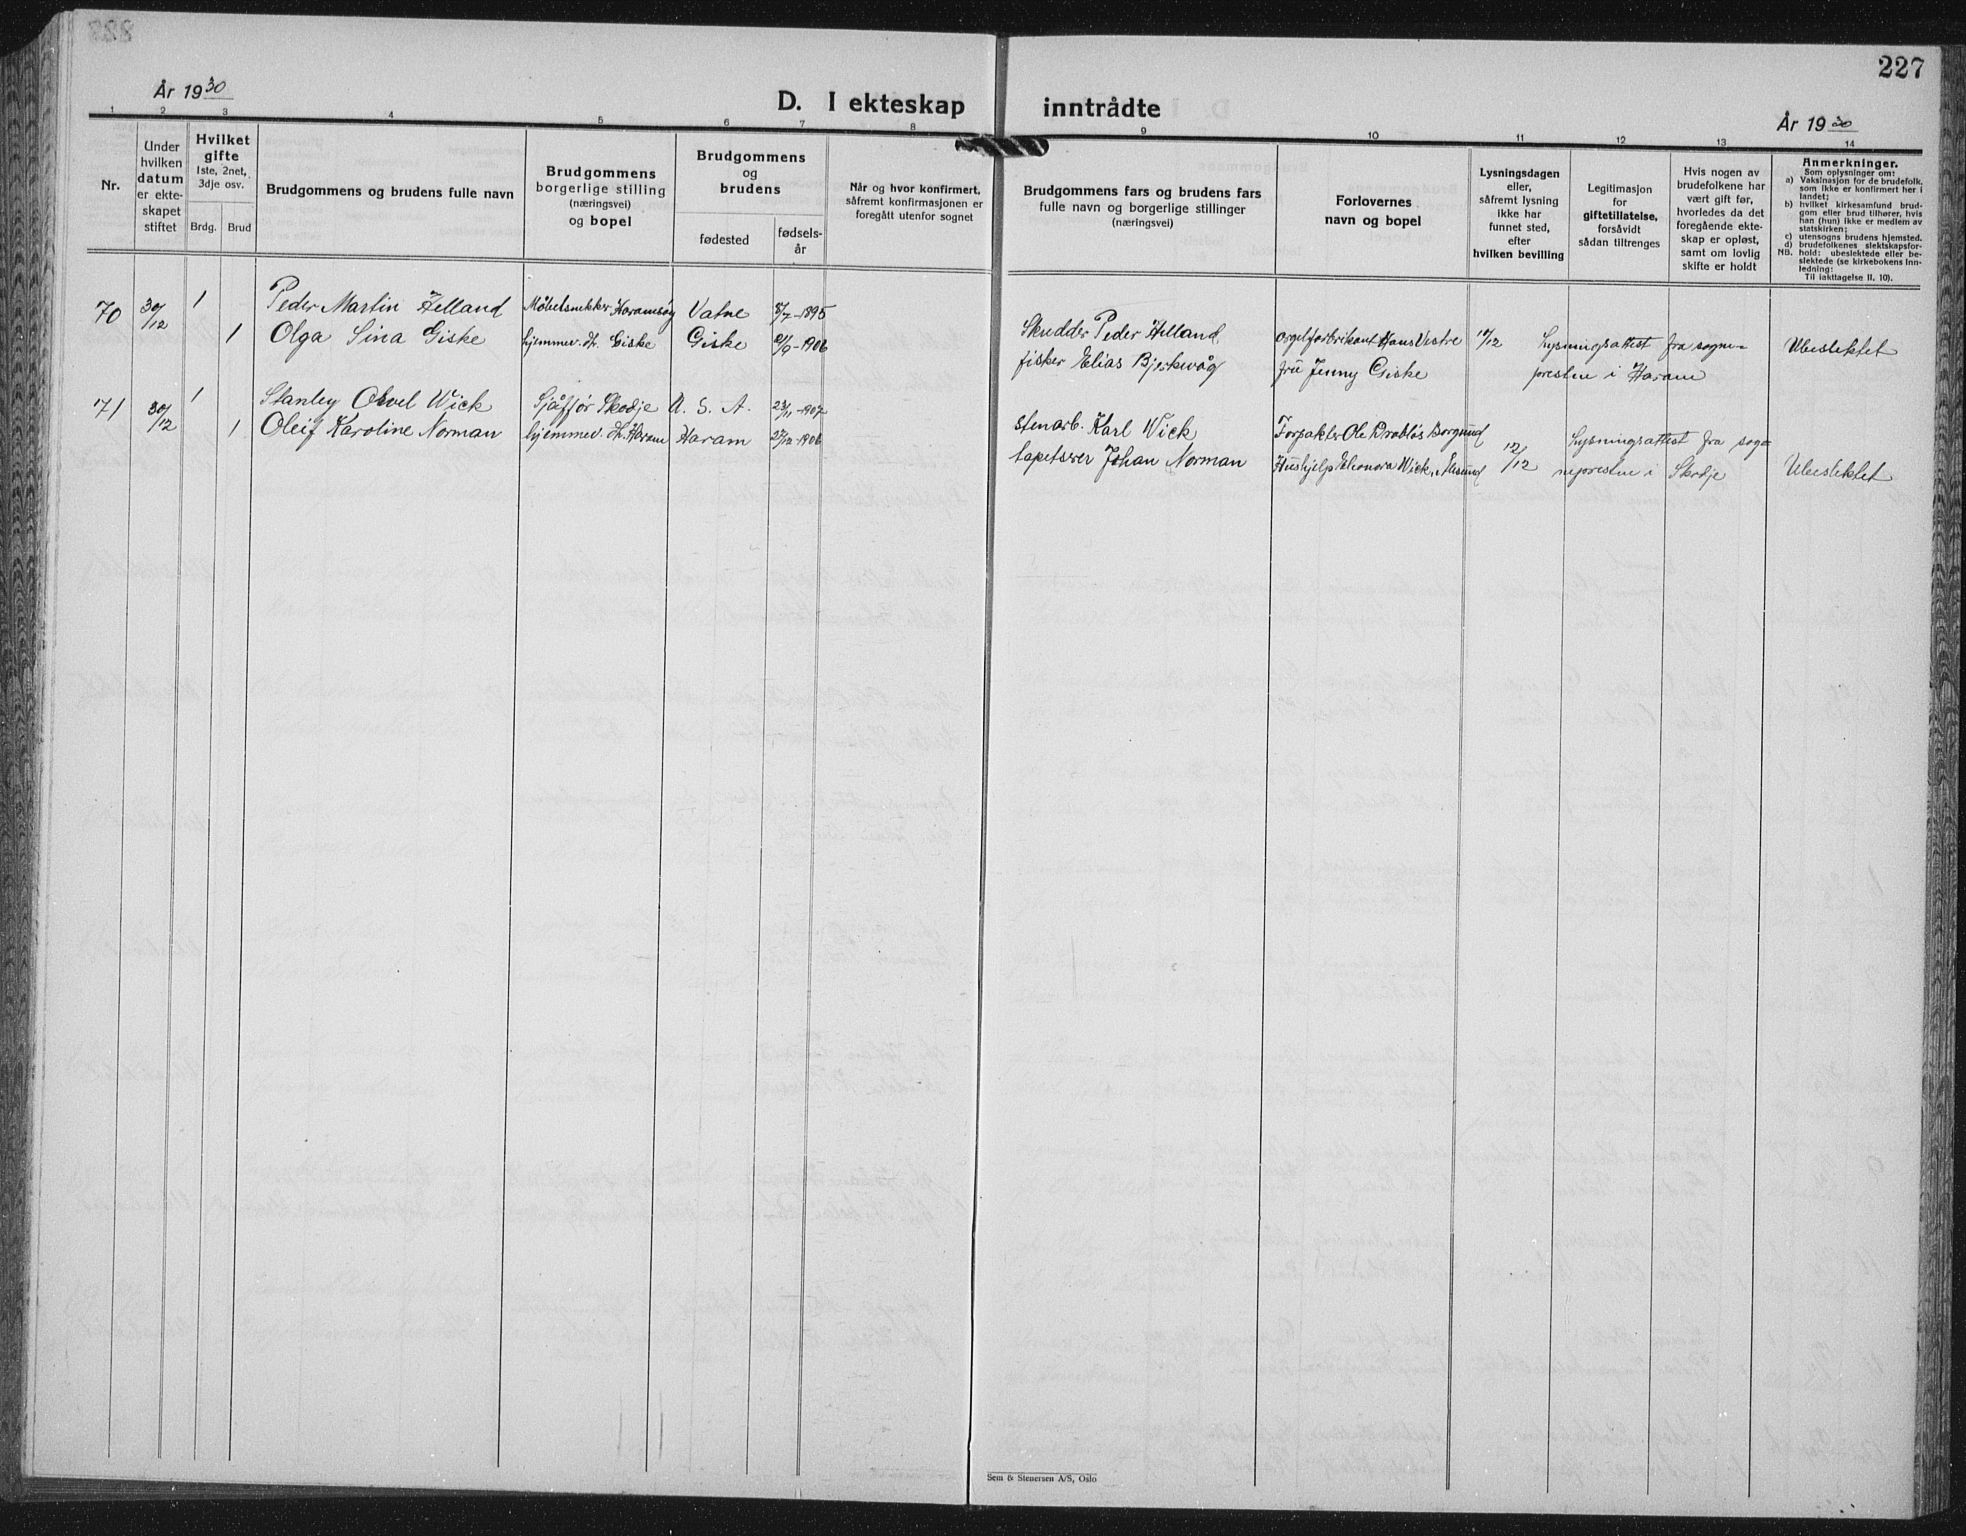 År 1930
D. I ekteskap inntrådte
227
År 1930
1 2 3 4 5 6 7 8 9 10 11 12 13 14
Nr.
Under
hvilken
datum
er ekte-
skapet
stiftet
Hvilket
gifte
1ste, 2net,
3dje osv.
Brdg. Brud
Brudgommens og brudens fulle navn
Brudgommens
borgerlige stilling
(næringsvei)
og bopel
Brudgommens
og
brudens
fødested
fødsels-
år
Når og hvor konfirmert,
såfremt konfirmasjonen er
foregått utenfor sognet
Brudgommens fars og brudens fars
fulle navn og borgerlige stillinger
(næringsvei)
Forlovernes
navn og bopel
Lysningsdagen
eller,
såfremt lysning
ikke har
funnet sted,
efter
hvilken bevilling
Legitimasjon
for
giftetillatelse,
forsåvidt
sådan tiltrenges
Hvis nogen av
brudefolkene har
vært gift før,
hvorledes da det
foregående ekte-
skap er opløst,
samt om lovlig
skifte er holdt
Anmerkninger.
Som oplysninger om:
a) Vaksinasjon for de brudefolk,
som ikke er konfirmert her i
landet;
b) hvilket kirkesamfund brud-
gom eller brud tilhører, hvis
han (hun) ikke er medlem av
statskirken;
c) utensogns brudens hjemsted.
d) brudefolkenes slektskapsfor-
NB. hold: ubeslektede eller be-
slektede (se kirkebokens Inn-
ledning:
Til iakttagelse II. 10).
70 30/12 1 Peder Martin Helland Møbelsnekker Haramsøy Vatne 8/7-1895 Skudder Peder Helland orgelfabrikant Hans Vestre 14/12 Lysningsattest fra sogne- Ubeslektet
1 Olga Sina Giske hjemmev. dt. Giske Giske 21/9-1906 fisker Elias Bjerkevåg frü Jenny Giske presten i Haram
71 30/12 1 Stanley Orvel Wick Sjåffør Skodje U. S. A. 23/11-1907 stenarb. Karl Wick Forpakter Ole Drabløs Borgund 12/12 Lysningsattest fra sog- Ubeslektet
1 Oleif Karoline Norman hjemmev. dt. Haram Haram 27/12-1906 tapetserer Johan Norman Hushjelp Eleonora Wick, Ålesund nepresten i Skodje
Sem & Stenersen A/S, Oslo